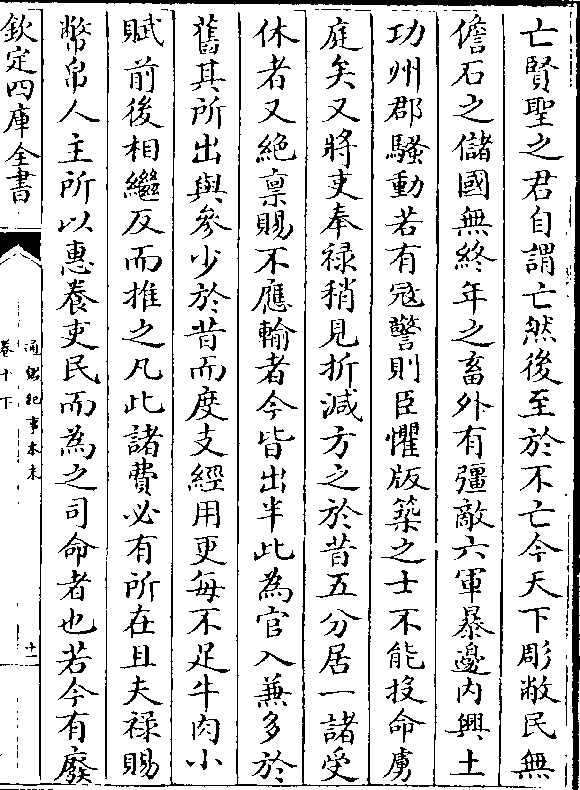 亡賢聖之君自謂亡然後至於不亡今天下彫敝民無
儋石之儲國無終年之畜外有彊敵六軍暴邊内興土
功州郡騷動若有寇警則臣懼版築之士不能投命虜
庭矣又將吏奉禄稍見折減方之於昔五分居一諸受
休者又絶禀賜不應輸者今皆出半此為官入兼多於
舊其所出與參少於昔而度支經用更每不足牛肉小
賦前後相繼反而推之凡此諸費必有所在且夫禄賜
幣帛人主所以惠養吏民而為之司命者也若今有廢
欽定四庫全書
通鑑紀事本末
卷十下
十一